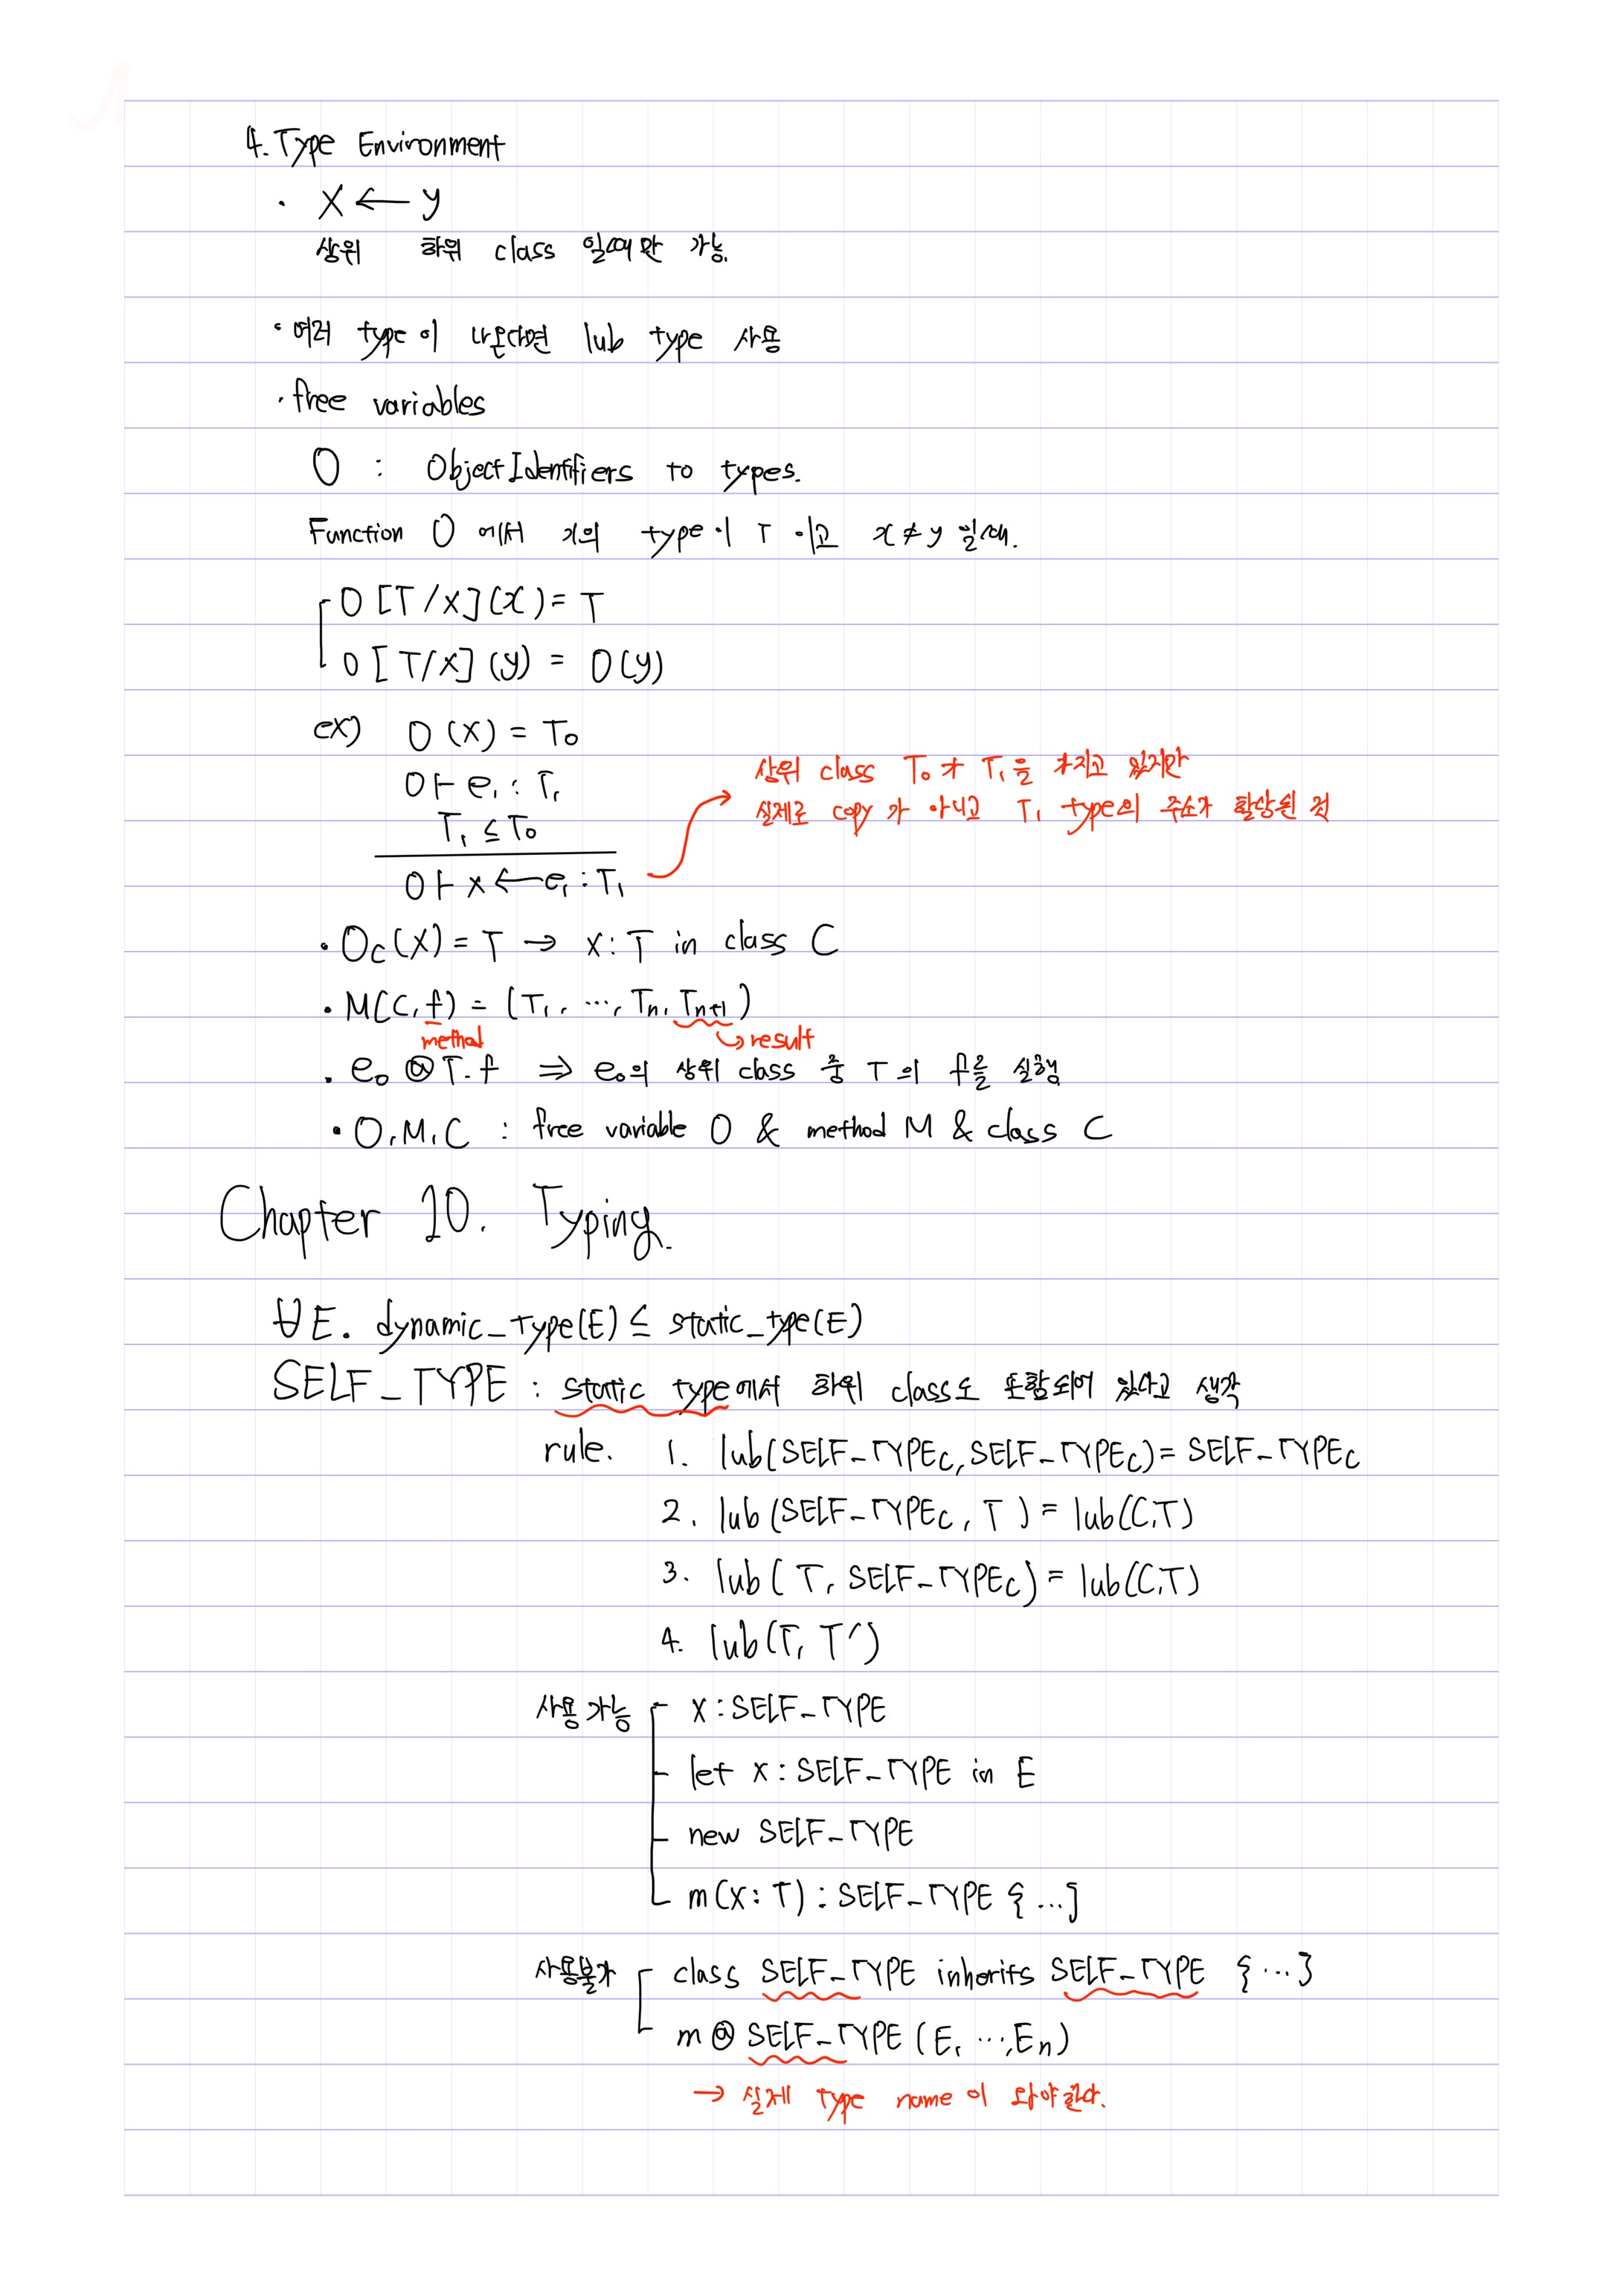 4. Type Environment
· X ← y
상위 하위 class 일때만 가능.
· 여러 type이 나온다면 lub type 사용
· free variables
O : ObjectIdentifiers to types.
Function O 에서 x의 type이 T 이고 x≠y 일때.
O[T/X](x) = T
O[T/X](y) = O(y)
ex) O(X) = T₀
O ⊢ e₁ : T₁
T₁ ≤ T₀
O ⊢ x ← e₁ : T₁
상위 class T₀가 T₁을 가지고 있지만
실제로 copy가 아니고 T₁ type의 주소가 할당된 것
· O_C(X) = T → x : T in class C
· M(C, f) = (T₁, ⋯, Tₙ, Tₙ₊₁)
method result
· e₀ @ T.f ⇒ e₀의 상위 class 중 T의 f를 실행
· O, M, C : free variable O & method M & class C
Chapter 10. Typing.
∀E. dynamic_type(E) ≤ static_type(E)
SELF_TYPE : static type에서 하위 class도 포함되어 있다고 생각
rule. 1. lub(SELF_TYPE_C, SELF_TYPE_C) = SELF_TYPE_C
2. lub(SELF_TYPE_C, T) = lub(C,T)
3. lub(T, SELF_TYPE_C) = lub(C,T)
4. lub(T, T′)
사용가능 x : SELF_TYPE
let x : SELF_TYPE in E
new SELF_TYPE
m(x : T) : SELF_TYPE {…}
사용불가 class SELF_TYPE inherits SELF_TYPE {…}
m @ SELF_TYPE (E, ⋯, Eₙ)
→ 실제 type name이 와야한다.